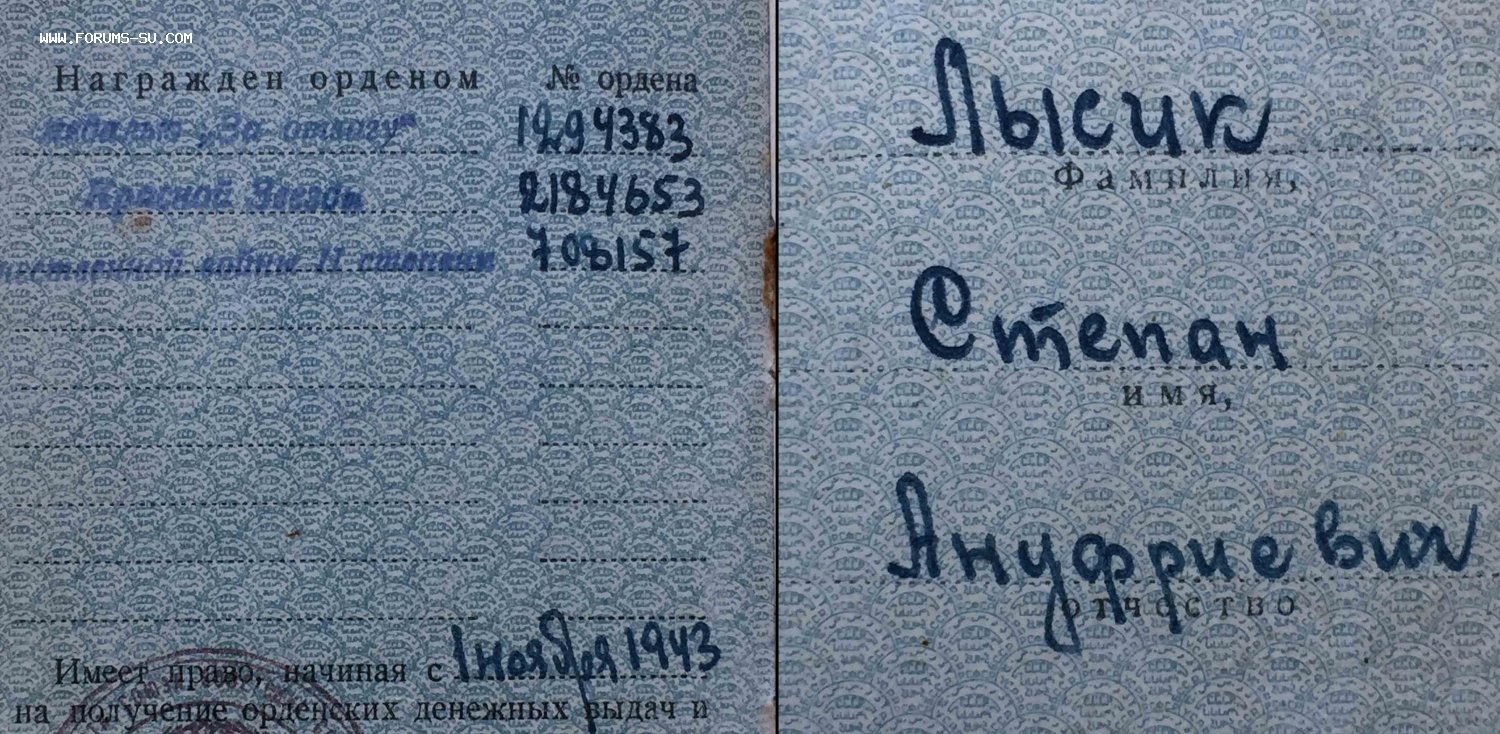 WWW.FORUMS-SU.COM
Награжден орденом № ордена
медалью „За отвагу“ 1294383
Красной Звезды 2184653
войны II степени 708157
Имеет право, начиная с 1 ноября 1943
на получение орденских денежных выдач и
Лысик
Фамилия,
Степан
имя,
Ануфриевич
отчество